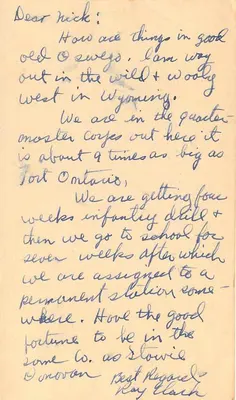 Dear Nick:
How are things in good
old Oswego. I am way
out in the wild & wooly
west in Wyoming.
We are in the quarter-
master corps out here it
is about 9 times as big as
Fort Ontario,
We are getting four
weeks infantry drill &
then we go to school for
seven weeks after which
we are assigned to a
permanent station some-
where. Have the good
fortune to be in the
same Co. as
Donovan
Best Regards
Ray